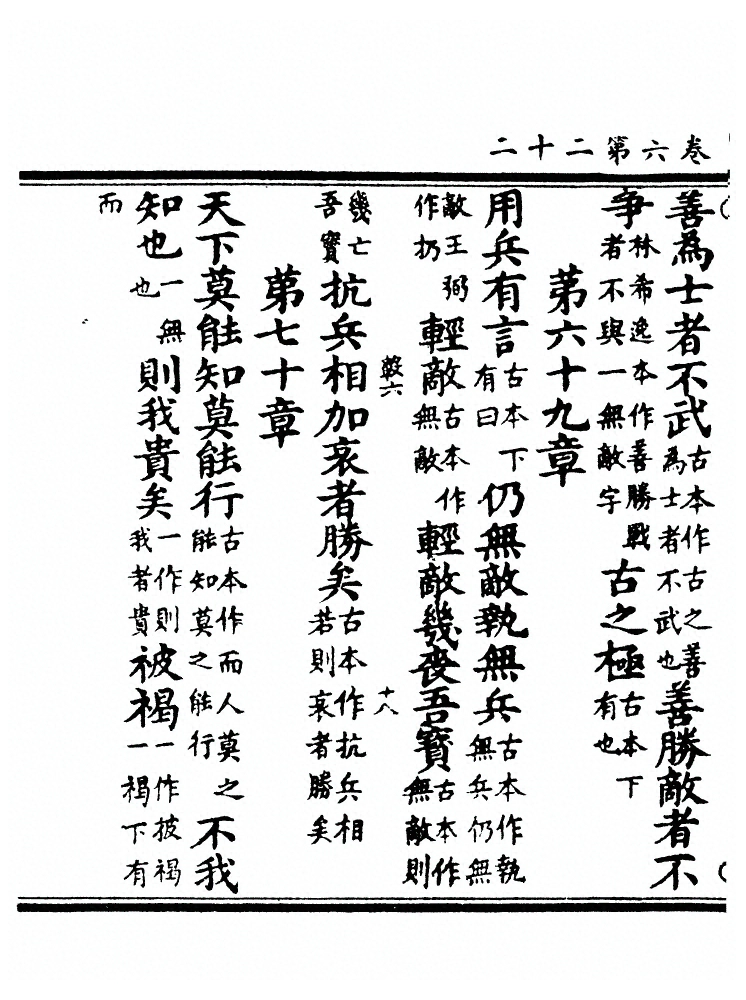 卷六第二十二
善為士者不武古本作古之善為士者不武也善勝敵者不
争林希逸本作善勝戰者不與一無敵字古之極古本下有也
第六十九章
用兵有言古本下有曰仍無敵執無兵古本作執無兵仍無
敵王弼作扔輕敵古本作無敵輕敵幾喪吾寶古本作無敵則
較六 十八
幾亡吾寶抗兵相加哀者勝矣古本作抗兵相若則哀者勝矣
第七十章
天下莫能知莫能行古本作而人莫之能知莫之能行不我
知也一無也則我貴矣一作則我者貴被褐一作披褐一褐下有
而